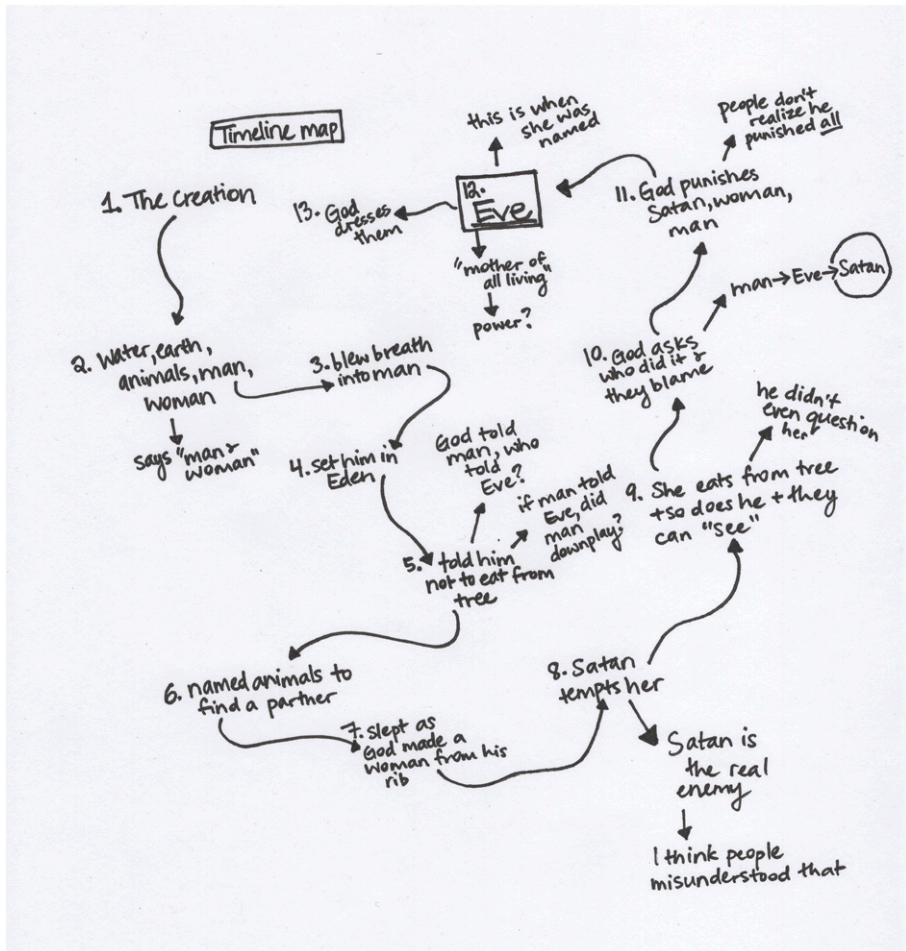 Timeline map
1. The creation
2. Water, earth,
animals, man,
woman
says "man &
woman"
3. blew breath
into man
4. set him in
Eden
5. told him
not to eat from
tree
God told
man, who
told
Eve?
if man told
Eve, did
man
downplay?
6. named animals to
find a partner
7. slept as
God made a
woman from his
rib
8. Satan
tempts her
Satan is
the real
enemy
I think people
misunderstood that
9. She eats from tree
+ so does he + they
can "see"
he didn't
even question
her
10. God asks
who did it &
they blame
man→Eve→Satan
11. God punishes
Satan, woman,
man
people don't
realize he
punished all
12.
Eve
this is when
she was
named
"mother of
all living"
power?
13. God
dresses
them